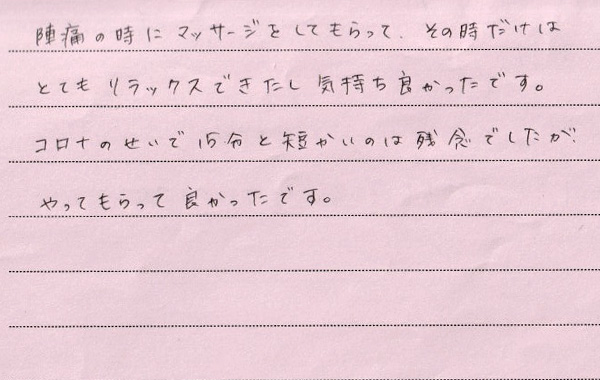 陣痛の時にマッサージをしてもらって、その時だけは
とてもリラックスできたし気持ち良かったです。
コロナのせいで15分と短かいのは残念でしたが
やってもらって良かったです。